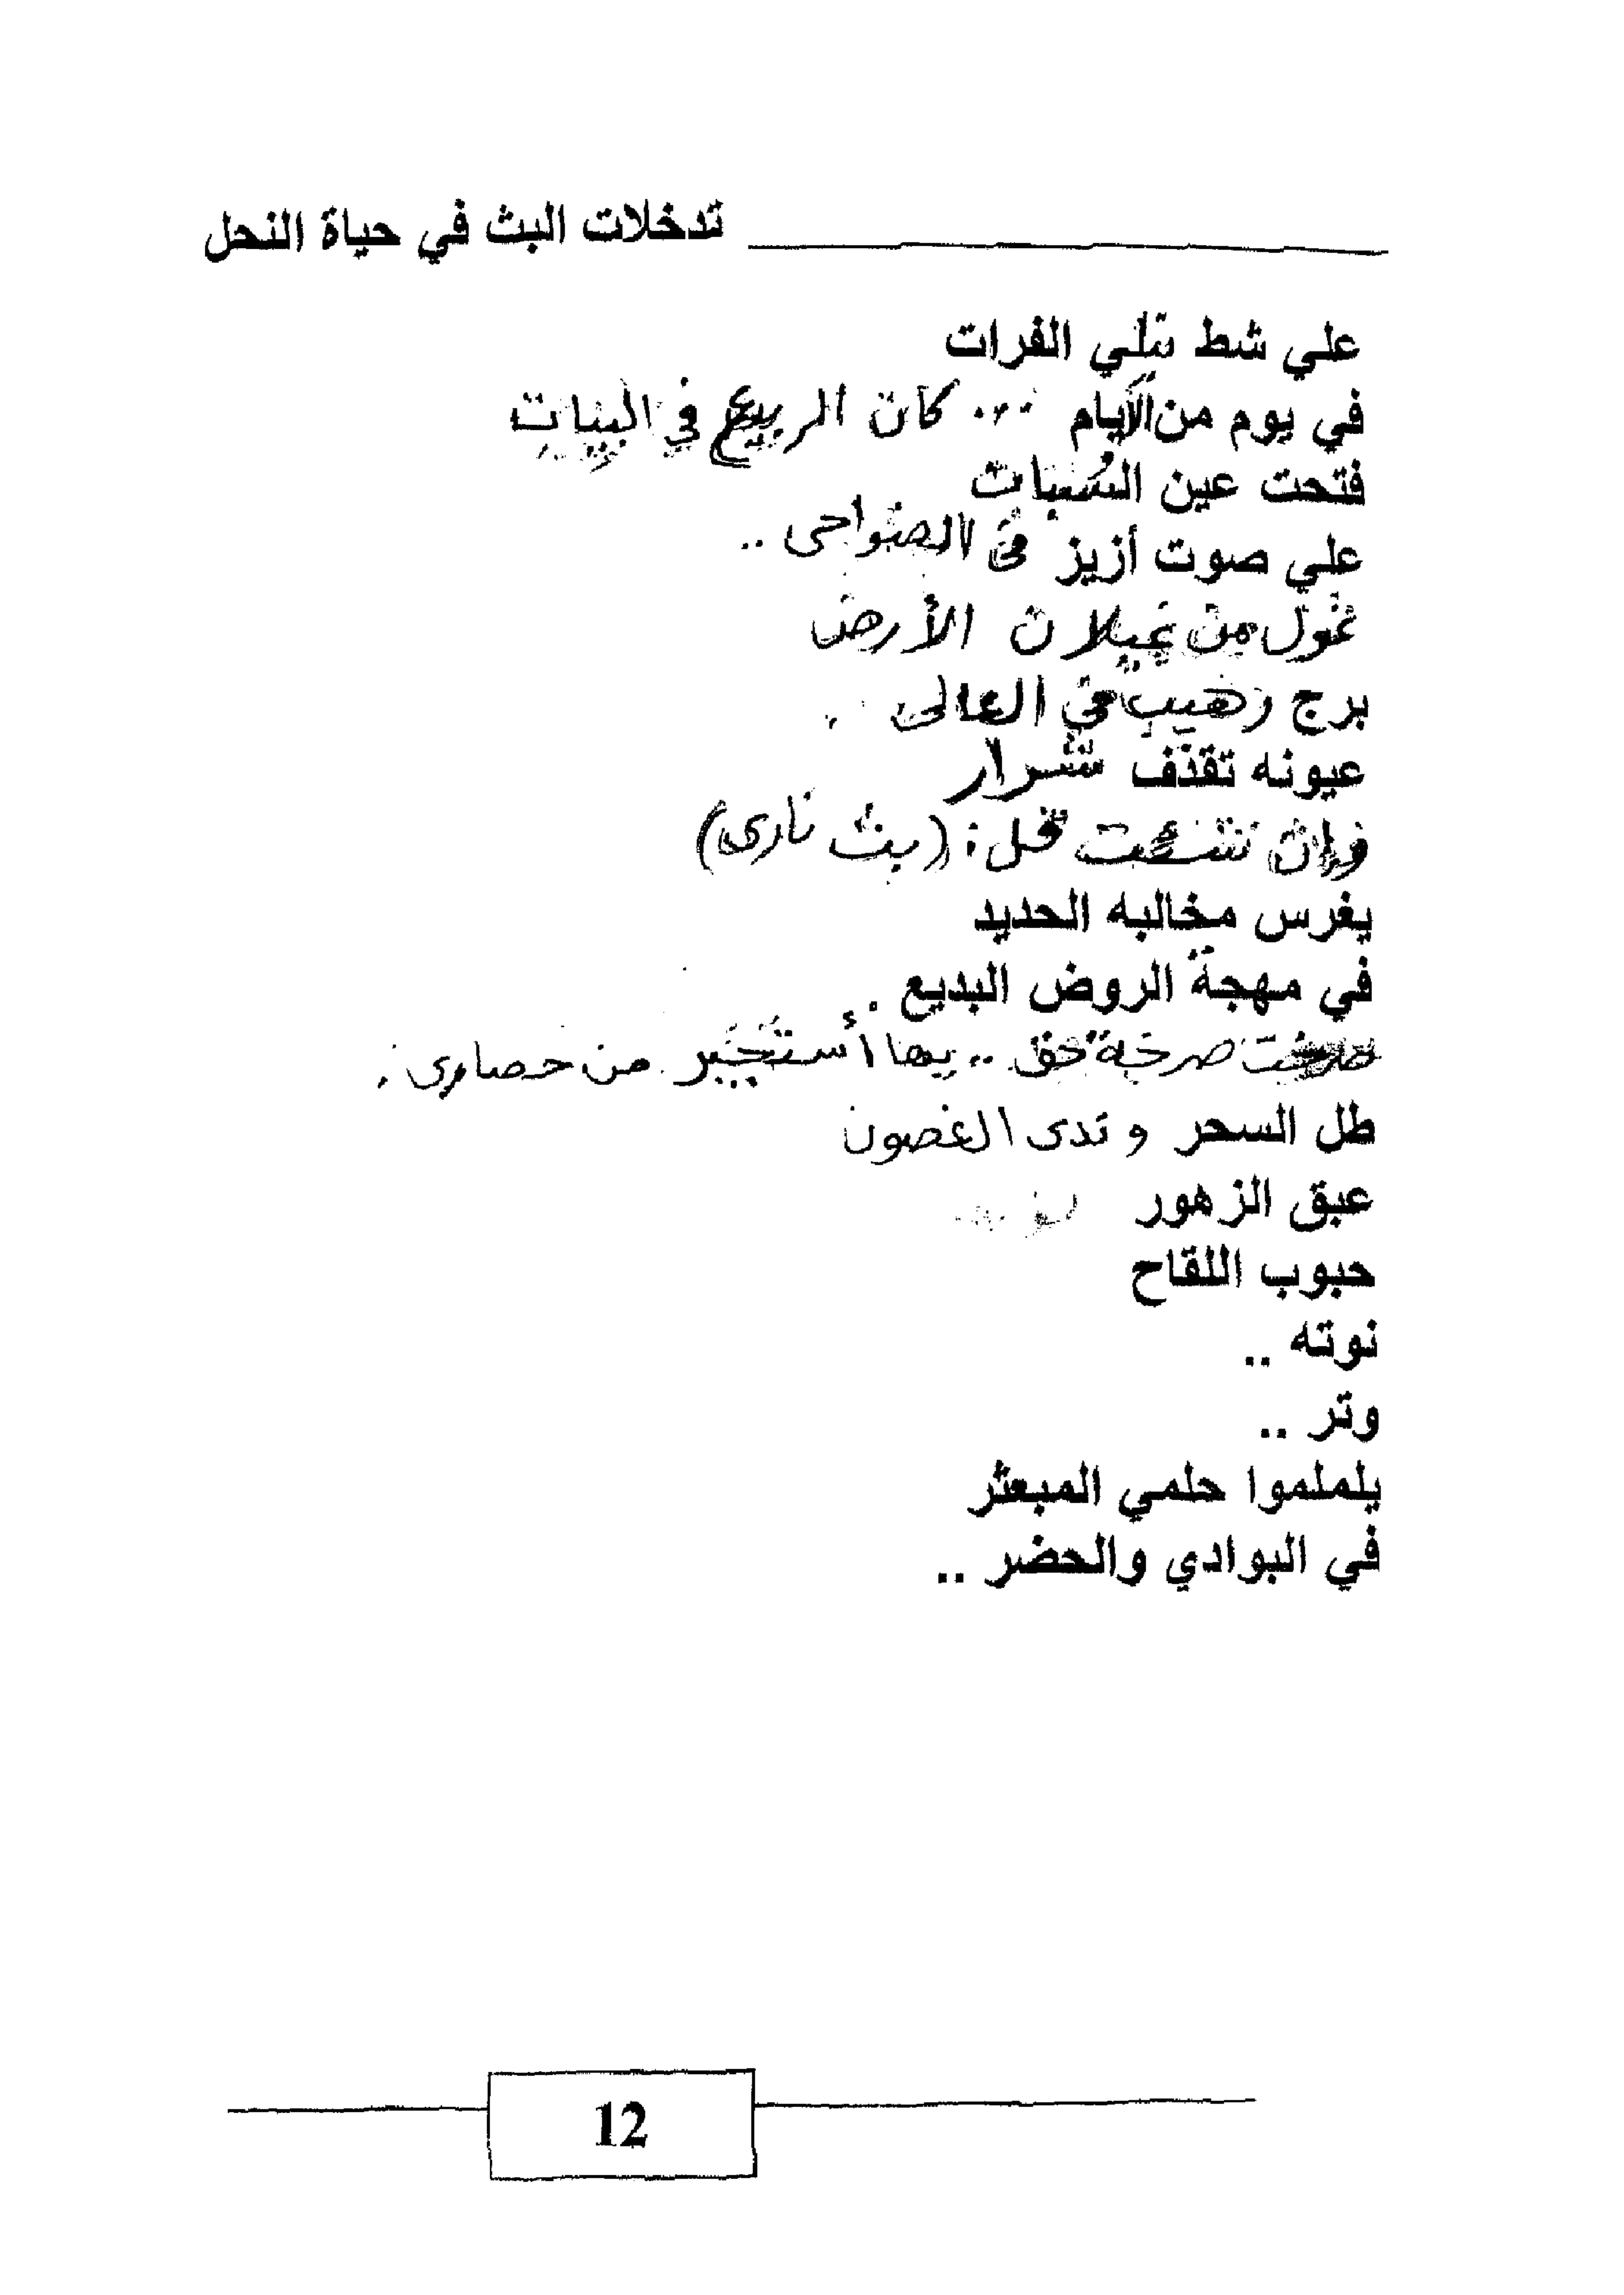 تدخلات البث في حياة النحل
علي شط نيلي الفرات
في يوم من الأيام ... كان الربيع في البيات
فتحت عين السُبات
علي صوت أزيز في الضواحى ..
غول من غيلان الأرض
برج رهيب في العالى ..
عيونه تقذف شرار
وان شئت قل : (بث نارى)
يغرس مخالبه الحديد
في مهجة الروض البديع .
صرخت صرخة حق .. بها أستجير من حصارى .
طل السحر و ندى الغصون
عبق الزهور
حبوب اللقاح
نوته ..
وتر ..
يلملموا حلمي المبعثر
في البوادي والحضر ..
12